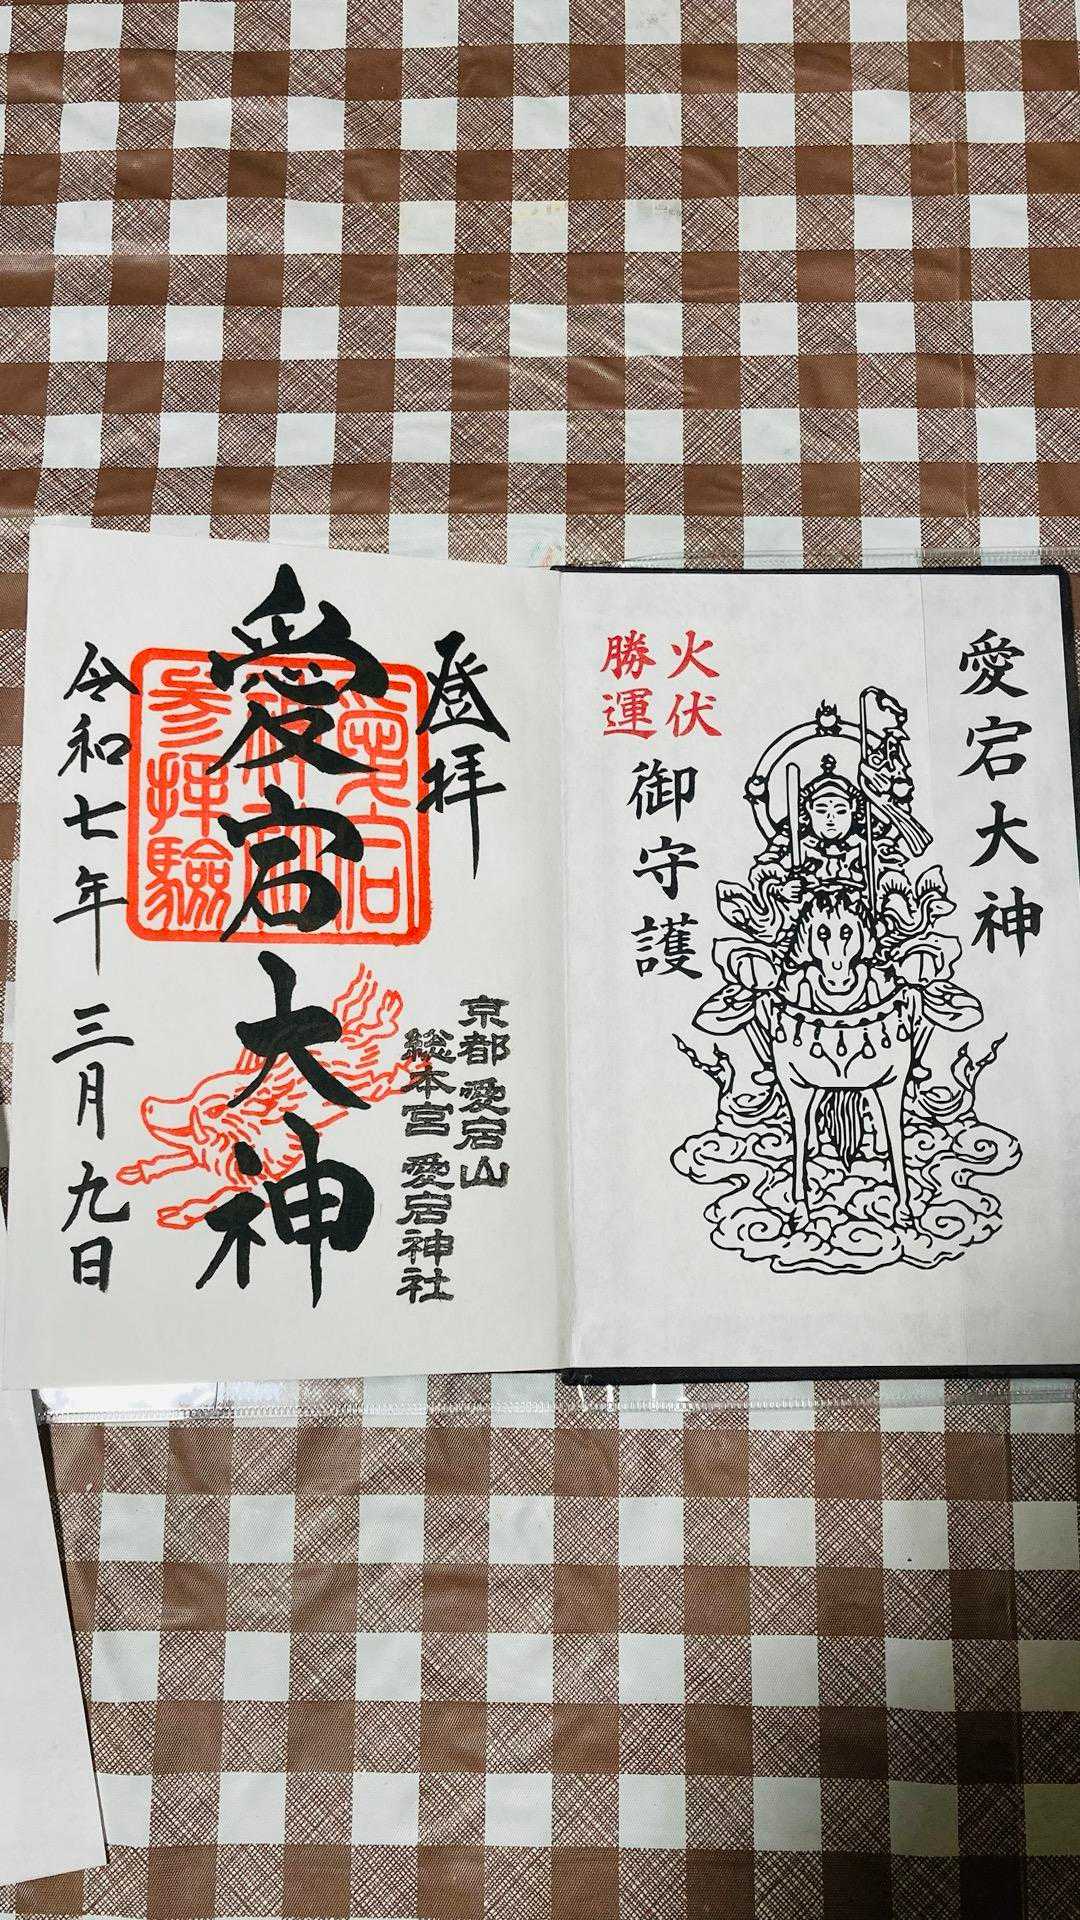 愛宕大神
火伏
勝運
御守護
登拝
京都 愛宕山
総本宮 愛宕神社
愛宕大神
愛宕
神社
参拝驗
令和七年 三月 九日